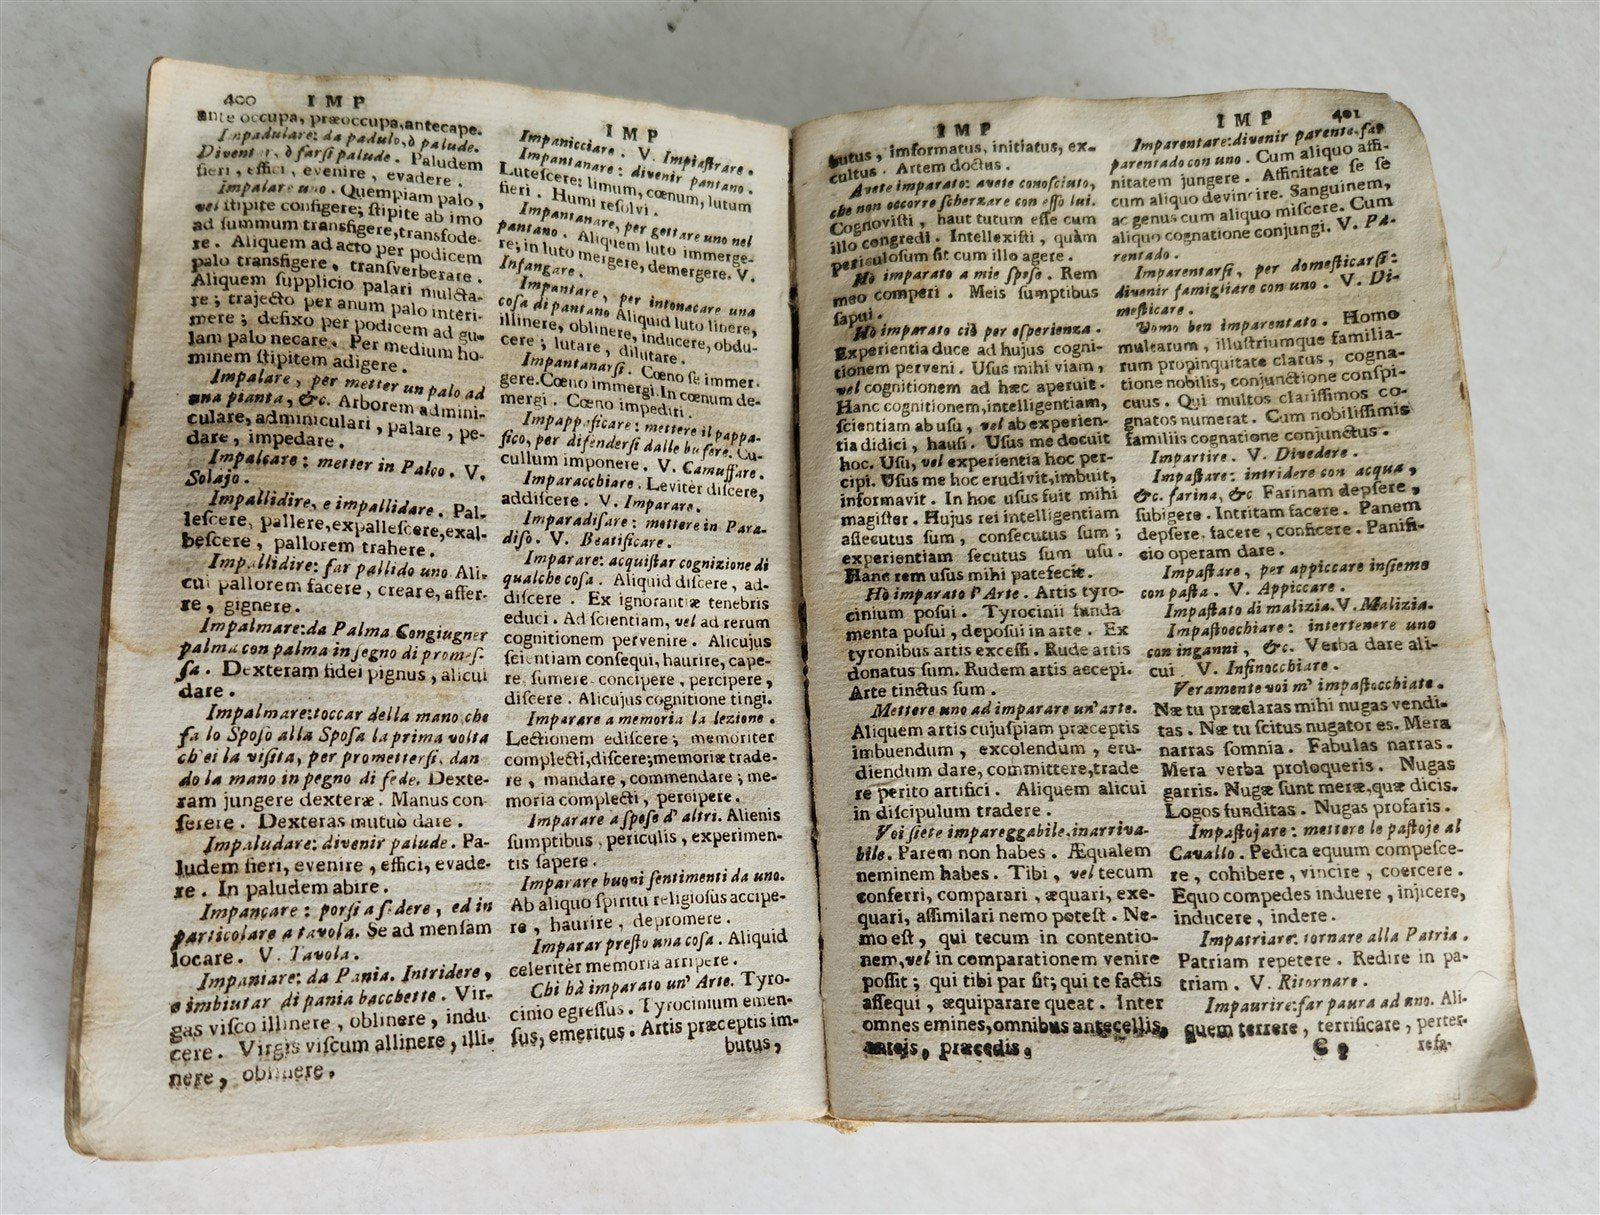 400 IMP
ante occupa, præoccupa, antecape.
Inpadulare: da padulo, ò palude.
Diventar, ò farſi palude. Paludem
fieri, effici, evenire, evadere.
Impalare uno. Quempiam palo,
vel ſtipite configere; ſtipite ab imo
ad ſummum transfigere, transfode-
re. Aliquem ad acto per podicem
palo transfigere, tranſverberare.
Aliquem ſupplicio palari mulcta-
re; trajecto per anum palo interi-
mere; defixo per podicem ad gu-
lam palo necare. Per medium ho-
minem ſtipitem adigere.
Impalare, per metter un palo ad
una pianta, &c. Arborem admini-
culare, adminiculari, palare, pe-
dare, impedare.
Impalcare: metter in Palco. V.
Solajo.
Impallidire, e impallidare. Pal-
leſcere, pallere, expalleſcere, exal-
beſcere, pallorem trahere.
Impallidire: far pallido uno. Ali-
cui pallorem facere, creare, affer-
re, gignere.
Impalmare: da Palma. Congiugner
palma con palma in ſegno di promeſ-
ſa. Dexteram fidei pignus, alicui
dare.
Impalmare: toccar della mano, che
fa lo Spoſo alla Spoſa la prima volta
ch'ei la viſita, per prometterſi, dan
do la mano in pegno di fede. Dexte-
ram jungere dexteræ. Manus con
ſerere. Dexteras mutuò dare.
Impaludare: divenir palude. Pa-
ludem fieri, evenire, effici, evade-
re. In paludem abire.
Impancare: porſi a ſedere, ed in
particolare a tavola. Se ad menſam
locare. V. Tavola.
Impaniare: da Pania. Intridere,
o imbiutar di pania bacchette. Vir-
gas viſco illinere, oblinere, indu
cere. Virgis viſcum allinere, illi-
nere, oblinere.
IMP
Impanicciare. V. Impiaſtrare.
Impantanare: divenir pantano.
Luteſcere: limum, cœnum, lutum
fieri. Humi reſolvi.
Impantanare, per gettare uno nel
pantano. Aliquem luto immerge-
re; in luto mergere, demergere. V.
Infangare.
Impantare, per intonacare una
coſa di pantano Aliquid luto linere,
illinere, oblinere, inducere, obdu-
cere; lutare, dilutare.
Impantanarſi. Cœno ſe immer-
gere. Cœno immergi. In cœnum de-
mergi. Cœno impediti.
Impappaficare: mettere il pappa-
fico, per difenderſi dalle bufere. Cu-
cullum imponere. V. Camuffare.
Imparacchiare. Levitèr diſcere,
addiſcere. V. Imparare.
Imparadiſare: mettere in Para-
diſo. V. Beatificare.
Imparare: acquiſtar cognizione di
qualche coſa. Aliquid diſcere, ad-
diſcere. Ex ignorantiæ tenebris
educi. Ad ſcientiam, vel ad rerum
cognitionem pervenire. Alicujus
ſcientiam conſequi, haurire, cape-
re, ſumere, concipere, percipere,
diſcere. Alicujus cognitione tingi.
Imparare a memoria la lezione.
Lectionem ediſcere; memoriter
complecti, diſcere; memoriæ trade-
re, mandare, commendare; me-
moria complecti, percipere.
Imparare a ſpeſe d' altri. Alienis
ſumptibus, periculis, experimen-
tis ſapere.
Imparare buoni ſentimenti da uno.
Ab aliquo ſpiritu religioſus accipe-
re, haurire, depromere.
Imparar preſto una coſa. Aliquid
celeritèr memoria arripere.
Chi hà imparato un' Arte. Tyro-
cinio egreſſus. Tyrocinium emen-
ſus, emeritus. Artis præceptis im-
butus,
IMP
butus, imformatus, initiatus, ex-
cultus. Artem doctus.
Avete imparato: avete conoſciuto,
che non occorre ſcherzare con eſſo lui.
Cognoviſti, haut tutum eſſe cum
illo congredi. Intellexiſti, quàm
periculoſum ſit cum illo agere.
Ho imparato a mie ſpeſe. Rem
meo comperi. Meis ſumptibus
ſapui.
Ho imparato ciò per eſperienza.
Experientia duce ad hujus cogni-
tionem perveni. Uſus mihi viam,
vel cognitionem ad hæc aperuit.
Hanc cognitionem, intelligentiam,
ſcientiam ab uſu, vel ab experien-
tia didici, hauſi. Uſus me docuit
hoc. Uſu, vel experientia hoc per-
cipi. Uſus me hoc erudivit, imbuit,
informavit. In hoc uſus fuit mihi
magiſter. Hujus rei intelligentiam
aſſecutus ſum, conſecutus ſum;
experientiam ſecutus ſum uſu.
Hanc rem uſus mihi patefecit.
Ho imparato l' Arte. Artis tyro-
cinium poſui. Tyrocinii funda
menta poſui, depoſui in arte. Ex
tyronibus artis exceſſi. Rude artis
donatus ſum. Rudem artis accepi.
Arte tinctus ſum.
Mettere uno ad imparare un' arte.
Aliquem artis cujuſpiam præceptis
imbuendum, excolendum, eru-
diendum dare, committere, trade
re perito artifici. Aliquem alicui
in diſcipulum tradere.
Voi ſiete impareggabile, inarriva-
bile. Parem non habes. Æqualem
neminem habes. Tibi, vel tecum
conferri, comparari, æquari, exe-
quari, aſſimilari nemo poteſt. Ne-
mo eſt, qui tecum in contentio-
nem, vel in comparationem venire
poſſit; qui tibi par ſit; qui te factis
aſſequi, æquiparare queat. Inter
omnes emines, omnibus antecellis,
anteis, præcedis.
IMP 401
Imparentare: divenir parente, far
parentado con uno. Cum aliquo affi-
nitatem jungere. Affinitate ſe ſe
cum aliquo devincire. Sanguinem,
ac genus cum aliquo miſcere. Cum
aliquo cognatione conjungi. V. Pa-
rentado.
Imparentarſi, per domeſticarſi:
divenir famigliare con uno. V. Di-
meſticare.
Uomo ben imparentato. Homo
multarum, illuſtriumque familia-
rum propinquitate clarus, cogna-
tione nobilis, conjunctione conſpi-
cuus. Qui multos clariſſimos co-
gnatos numerat. Cum nobiliſſimis
familiis cognatione conjunctus.
Impartire. V. Dividere.
Impaſtare: intridere con acqua,
&c. farina, &c Farinam depſere,
ſubigere. Intritam facere. Panem
depſere, facere, conficere. Panifi-
cio operam dare.
Impaſtare, per appiccare inſieme
con paſta. V. Appiccare.
Impaſtato di malizia. V. Malizia.
Impaſtocchiare: intertenere uno
con inganni, &c. Verba dare ali-
cui V. Infinocchiare.
Veramente voi m' impaſtocchiate.
Næ tu præclaras mihi nugas vendi-
tas. Næ tu ſcitus nugator es. Mera
narras ſomnia. Fabulas narras.
Mera verba proloqueris. Nugas
garris. Nugæ ſunt meræ, quæ dicis.
Logos funditas. Nugas profaris.
Impaſtojare: mettere le paſtoje al
Cavallo. Pedica equum compeſce-
re, cohibere, vincire, coercere.
Equo compedes induere, injicere,
inducere, indere.
Impatriare: tornare alla Patria.
Patriam repetere. Redire in pa-
triam. V. Ritornare.
Impaurire: far paura ad uno. Ali-
quem terrere, terrificare, perter-
C c refa-